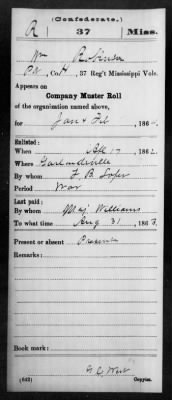 (Confederate.)
R 37 Miss.
Wm Robinson
Pvt, Co. H, 37 Reg't Mississippi Vols.
Appears on
Company Muster Roll
of the organization named above,
for Jan & Feb, 186
Enlisted:
When 17, 1862.
Where Garlandville
By whom F. B. Loper
Period War
Last paid:
By whom Maj. Williams
To what time Aug 31, 1863.
Present or absent Present
Remarks:
Book mark:
(642) Copyist.